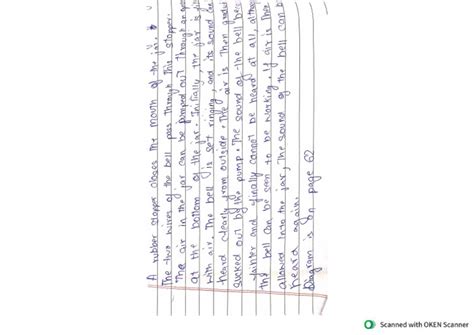 A rubber stopper closes the mouth of the jar.
The two wires of the bell pass through this stopper.
The air in the jar can be pumped out through an
at the bottom of the jar. Initially, the jar is
with air. The bell is set ringing, and its sound
heard clearly from outside. The air is then
sucked out by the pump. The sound of the bell
fainter and finally cannot be heard at all,
the bell can be seen to be working. If air is then
allowed into the jar, the sound of the bell can
heard again.
Diagram is on page 62
Scanned with OKEN Scanner